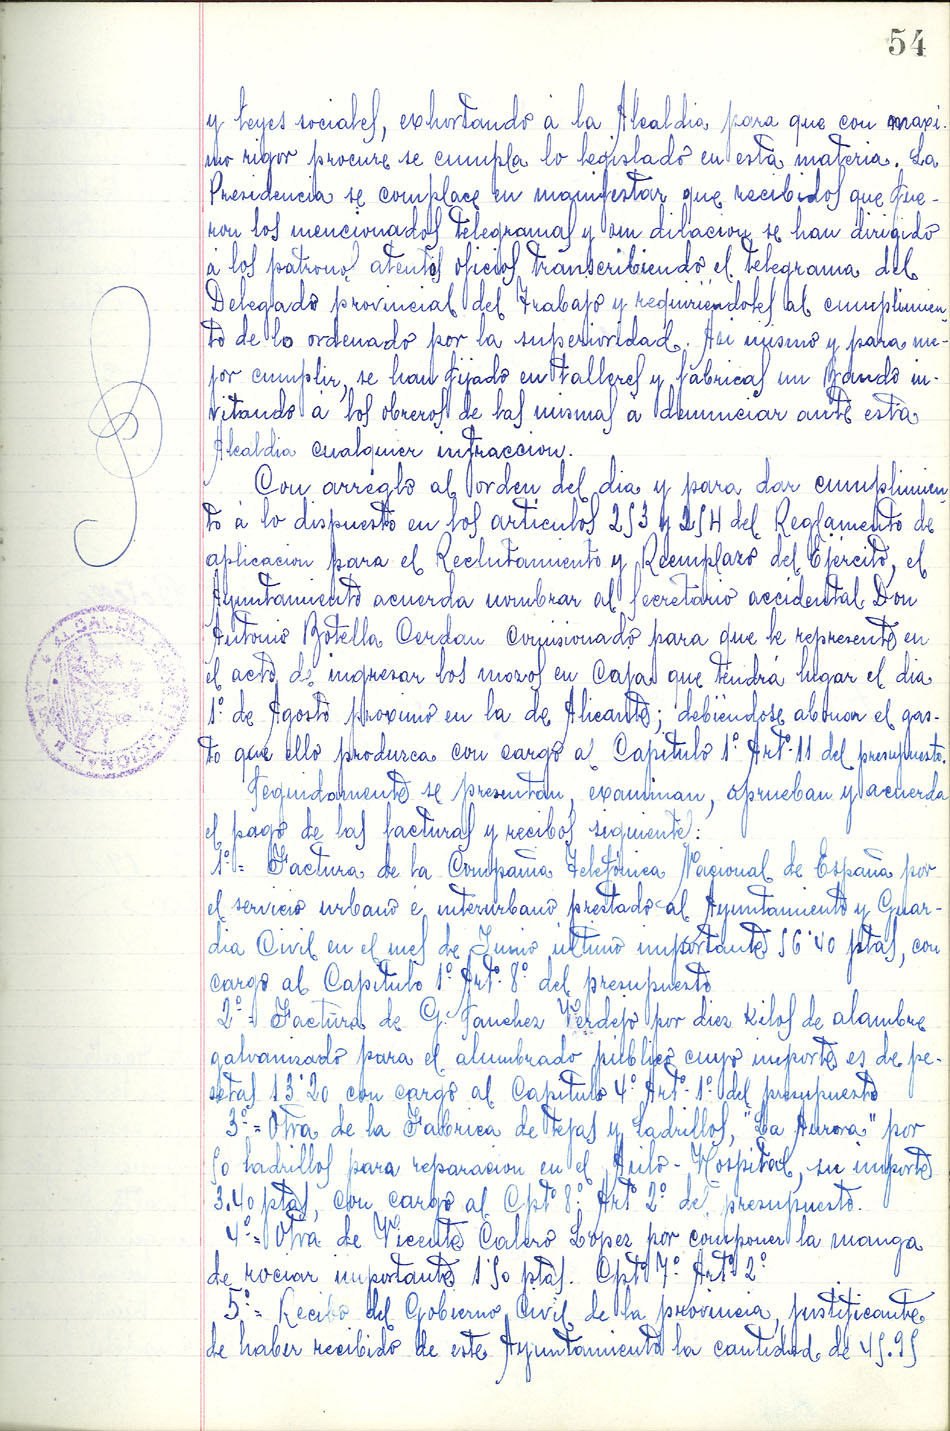 54
y leyes sociales, exhortando á la Alcaldia para que con maxi-
mo rigor procure se cumpla lo legislado en esta materia. La
Presidencia se complace en manifestar que recibidos que fue-
ron los mencionados telegramas y sin dilacion se han dirigido
á los patronos atentos oficios transcribiendo el telegrama del
Delegado provincial del Trabajo y requiriéndoles al cumplimien-
to de lo ordenado por la superioridad. Asi mismo y para me-
jor cumplir, se han fijado en talleres y fábricas un Bando in-
vitando á los obreros de las mismas a denunciar ante esta
Alcaldia cualquier infraccion.
Con arreglo al orden del dia y para dar cumplimien-
to á lo dispuesto en los articulos 253 y 254 del Reglamento de
aplicacion para el Reclutamiento y Reemplazo del Ejército, el
Ayuntamiento acuerda nombrar al Secretario accidental Don
Antonio Botella Cerdan comisionado para que le represente en
el acto de ingresar los mozos en Caja que tendrá lugar el dia
1º de Agosto proximo en la de Alicante; debiéndose abonar el gas-
to que ello produzca con cargo al Capitulo 1º Artº 11 del presupuesto.
Seguidamente se presentan, examinan, aprueban y acuerda
el pago de las facturas y recibos siguiente:
1º= Factura de la Compañia Telefónica Nacional de España por
el servicio urbano é interurbano prestado al Ayuntamiento y Guar-
dia Civil en el mes de Junio último importante 56'40 ptas, con
cargo al Capitulo 1º Artº 8º del presupuesto
2º= Factura de G. Sanchez Verdejo por diez kilos de alambre
galvanizado para el alumbrado publico cuyo importe es de pe-
setas 13'20 con cargo al Capitulo 4º Artº 1º del presupuesto
3º= Otra de la Fabrica de tejas y ladrillos, "La Aurora" por
50 ladrillos para reparacion en el Asilo-Hospital, su importe
3.40 ptas, con cargo al Cptº 8º Artº 2º del presupuesto.
4º= Otra de Vicente Calero López por componer la manga
de rociar importante 1'50 ptas. Cptº 7º Artº 2º
5º= Recibo del Gobierno Civil de la provincia, justificante
de haber recibido de este Ayuntamiento la cantidad de 45.95